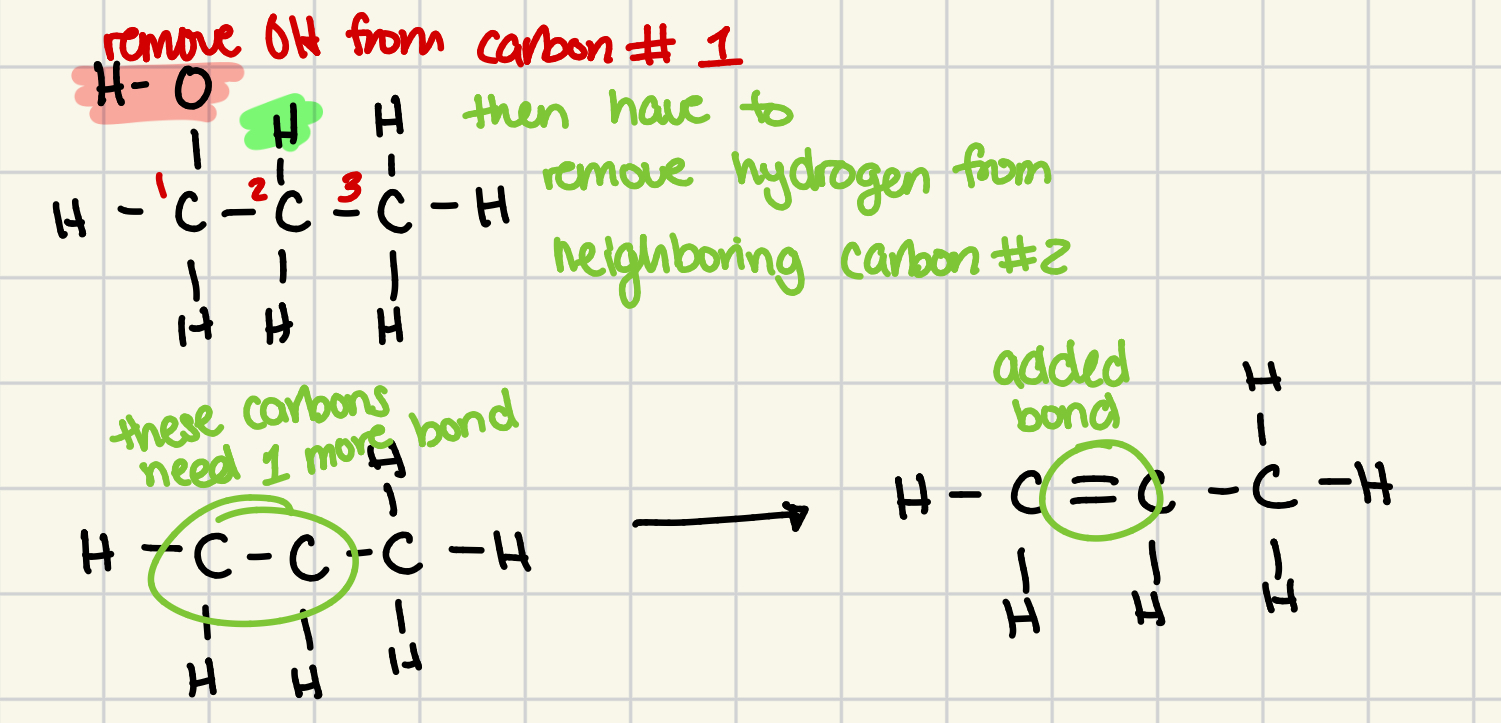 remove OH from carbon # 1
H - O
H H then have to
remove hydrogen from
1 2 3
H - C - C - C - H
neighboring carbon #2
H H H
these carbons
need 1 more bond
H
H - C - C - C - H
H H H
added
bond
H
H - C = C - C - H
H H H